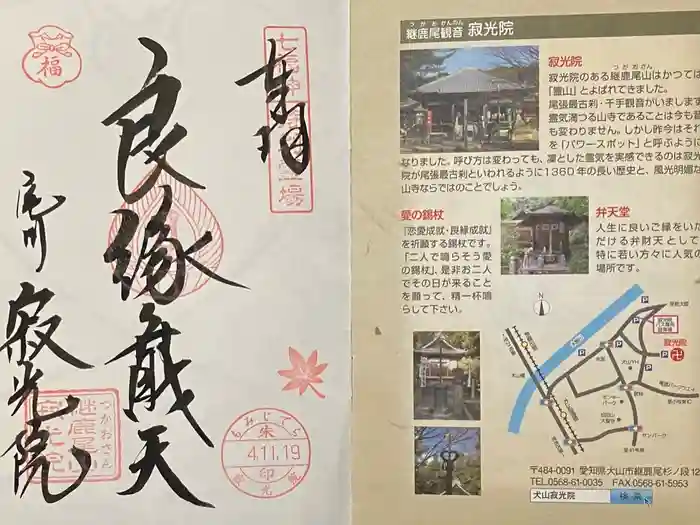 奉拝
良縁義天
尾州
寂光院
福
七福神
霊場
継鹿尾山
つがおさん
寂光院
もみじでら
朱
4.11.19
印
寂光院
つがおかんのん
継鹿尾観音 寂光院
寂光院
つがおさん
寂光院のある継鹿尾山はかつては
「霊山」とよばれてきました。
尾張最古刹・千手観音がいします
霊気満つる山寺であることは今も昔
も変わりません。しかし昨今はそれ
を「パワースポット」と呼ぶように
なりました。呼び方は変わっても、凜とした霊気を実感できるのは寂光
院が尾張最古刹といわれるように1360年の長い歴史と、風光明媚な
山寺ならではのことでしょう。
愛の錫杖
『恋愛成就・良縁成就』
を祈願する錫杖です。
「二人で鳴らそう愛
の錫杖」、是非お二人
でその日が来ること
を願って、精一杯鳴
らして下さい。
弁天堂
人生に良いご縁をいた
だける弁財天として
特に若い方々に人気の
場所です。
N
P
P
P
P
寂光院
犬山YH
犬山橋
サンパーク
〒484-0091 愛知県犬山市継鹿尾杉ノ段12
TEL.0568-61-0035 FAX.0568-61-5953
犬山寂光院
検索